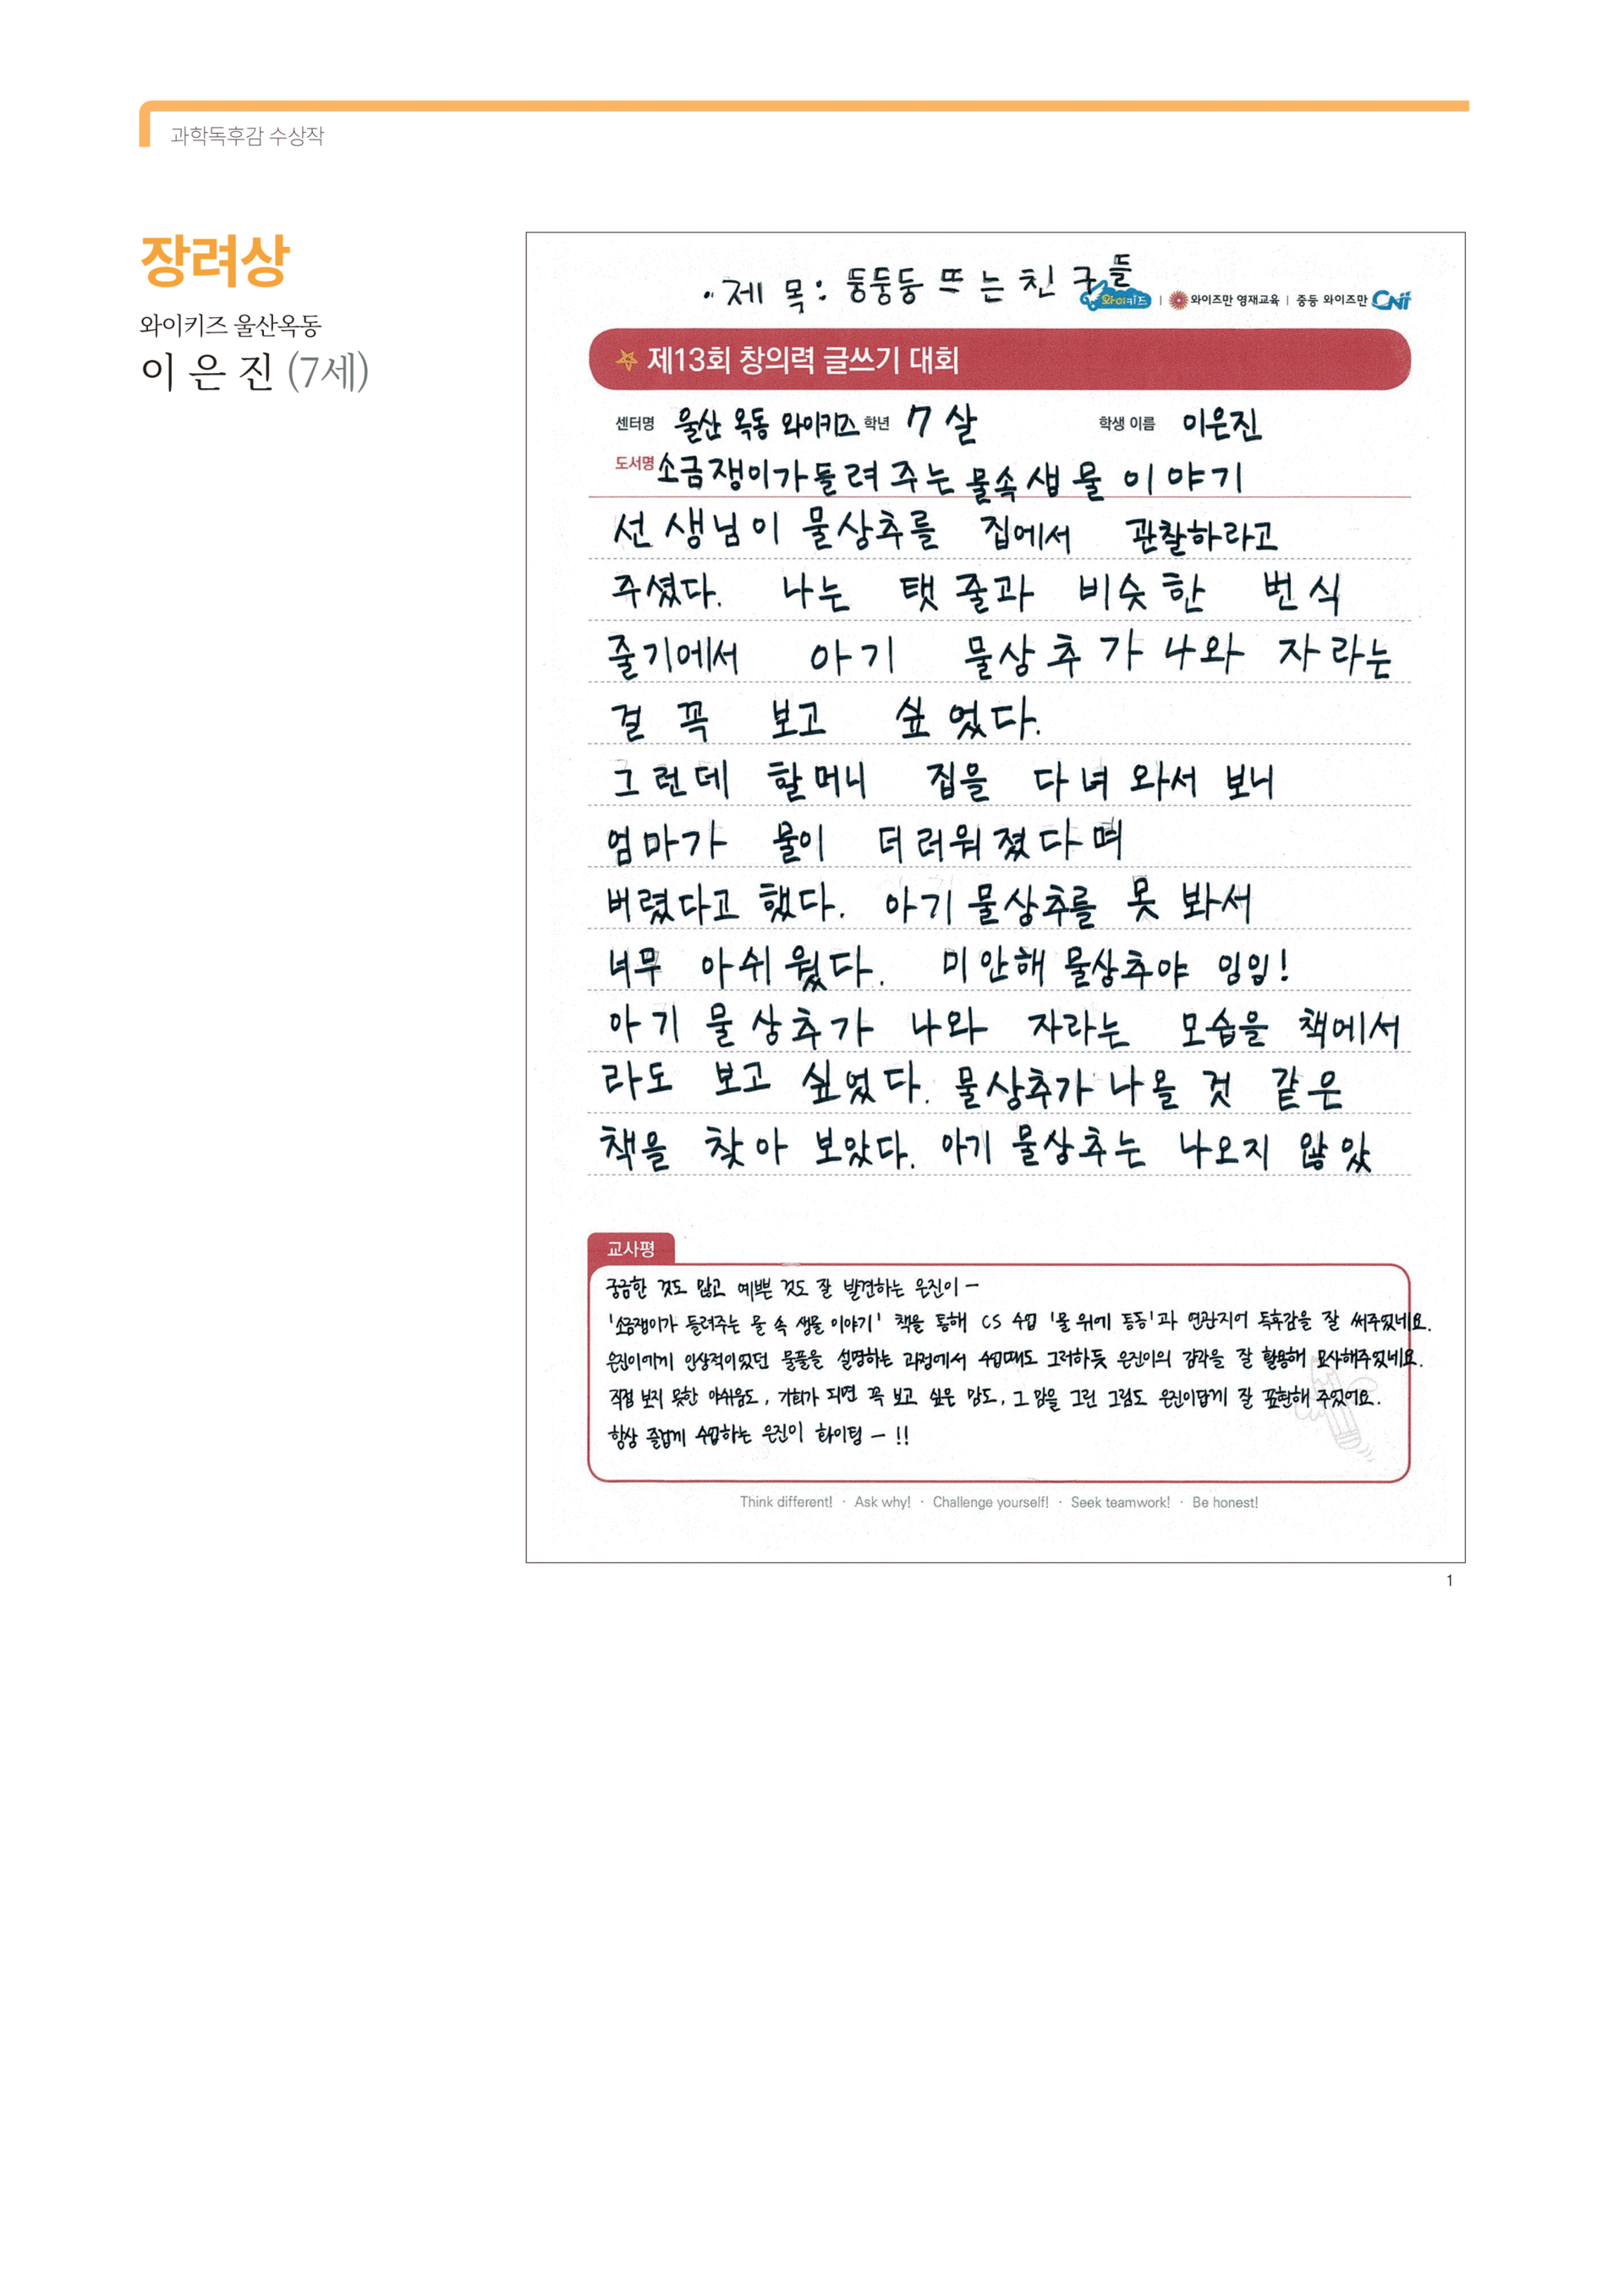 과학독후감 수상작
장려상
와이키즈 울산옥동
이 은 진 (7세)
• 제 목 : 둥둥둥 뜨 는 친 구들
와이키즈 | 와이즈만 영재교육 | 중등 와이즈만 CNiT
제13회 창의력 글쓰기 대회
센터명 울산 옥동 와이키즈 학년 7 살 학생 이름 이은진
도서명 소금쟁이가들려 주는 물속 생물 이야기
선생님이 물상추를 집에서 관찰하라고
주셨다. 나는 탯줄과 비슷한 번식
줄기에서 아기 물상추가 나와 자라는
걸 꼭 보고 싶었다.
그런데 할머니 집을 다녀와서 보니
엄마가 물이 더러워졌다며
버렸다고 했다. 아기 물상추를 못 봐서
너무 아쉬웠다. 미안해 물상추야 잉잉!
아기 물상추가 나와 자라는 모습을 책에서
라도 보고 싶었다. 물상추가 나올 것 같은
책을 찾아 보았다. 아기 물상추는 나오지 않았
교사평
궁금한 것도 많고 예쁜 것도 잘 발견하는 은진이 –
'소금쟁이가 들려주는 물 속 생물 이야기' 책을 통해 CS 수업 '물 위에 동동'과 연관지어 독후감을 잘 써주었네요.
은진이에게 인상적이었던 물풀을 설명하는 과정에서 수업때도 그러하듯 은진이의 감각을 잘 활용해 묘사해주었네요.
직접 보지 못한 아쉬움도, 기회가 되면 꼭 보고 싶은 맘도, 그 맘을 그린 그림도 은진이답게 잘 표현해 주었어요.
항상 즐겁게 수업하는 은진이 화이팅 – !!
Think different! · Ask why! · Challenge yourself! · Seek teamwork! · Be honest!
1